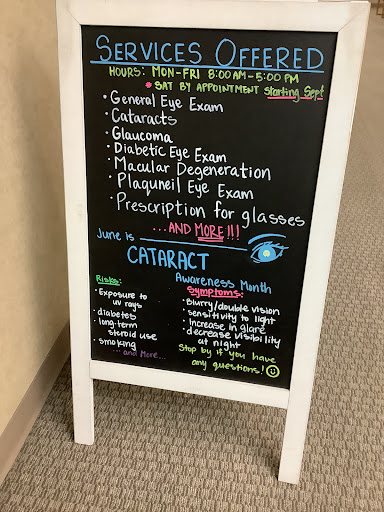 SERVICES OFFERED
HOURS: MON-FRI 8:00AM-5:00 PM
* SAT BY APPOINTMENT starting Sept
• General Eye Exam
• Cataracts
• Glaucoma
• Diabetic Eye Exam
• Macular Degeneration
• Plaquneil Eye Exam
• Prescription for glasses
...AND MORE!!!
June is
CATARACT
Awareness Month
Risks:
• Exposure to
uv rays
• diabetes
• long-term
steroid use
• smoking
...and More...
Symptoms:
• Blurry/double vision
• sensitivity to light
• Increase in glare
• decrease visibility
at night
Stop by if you have
any questions! ☺